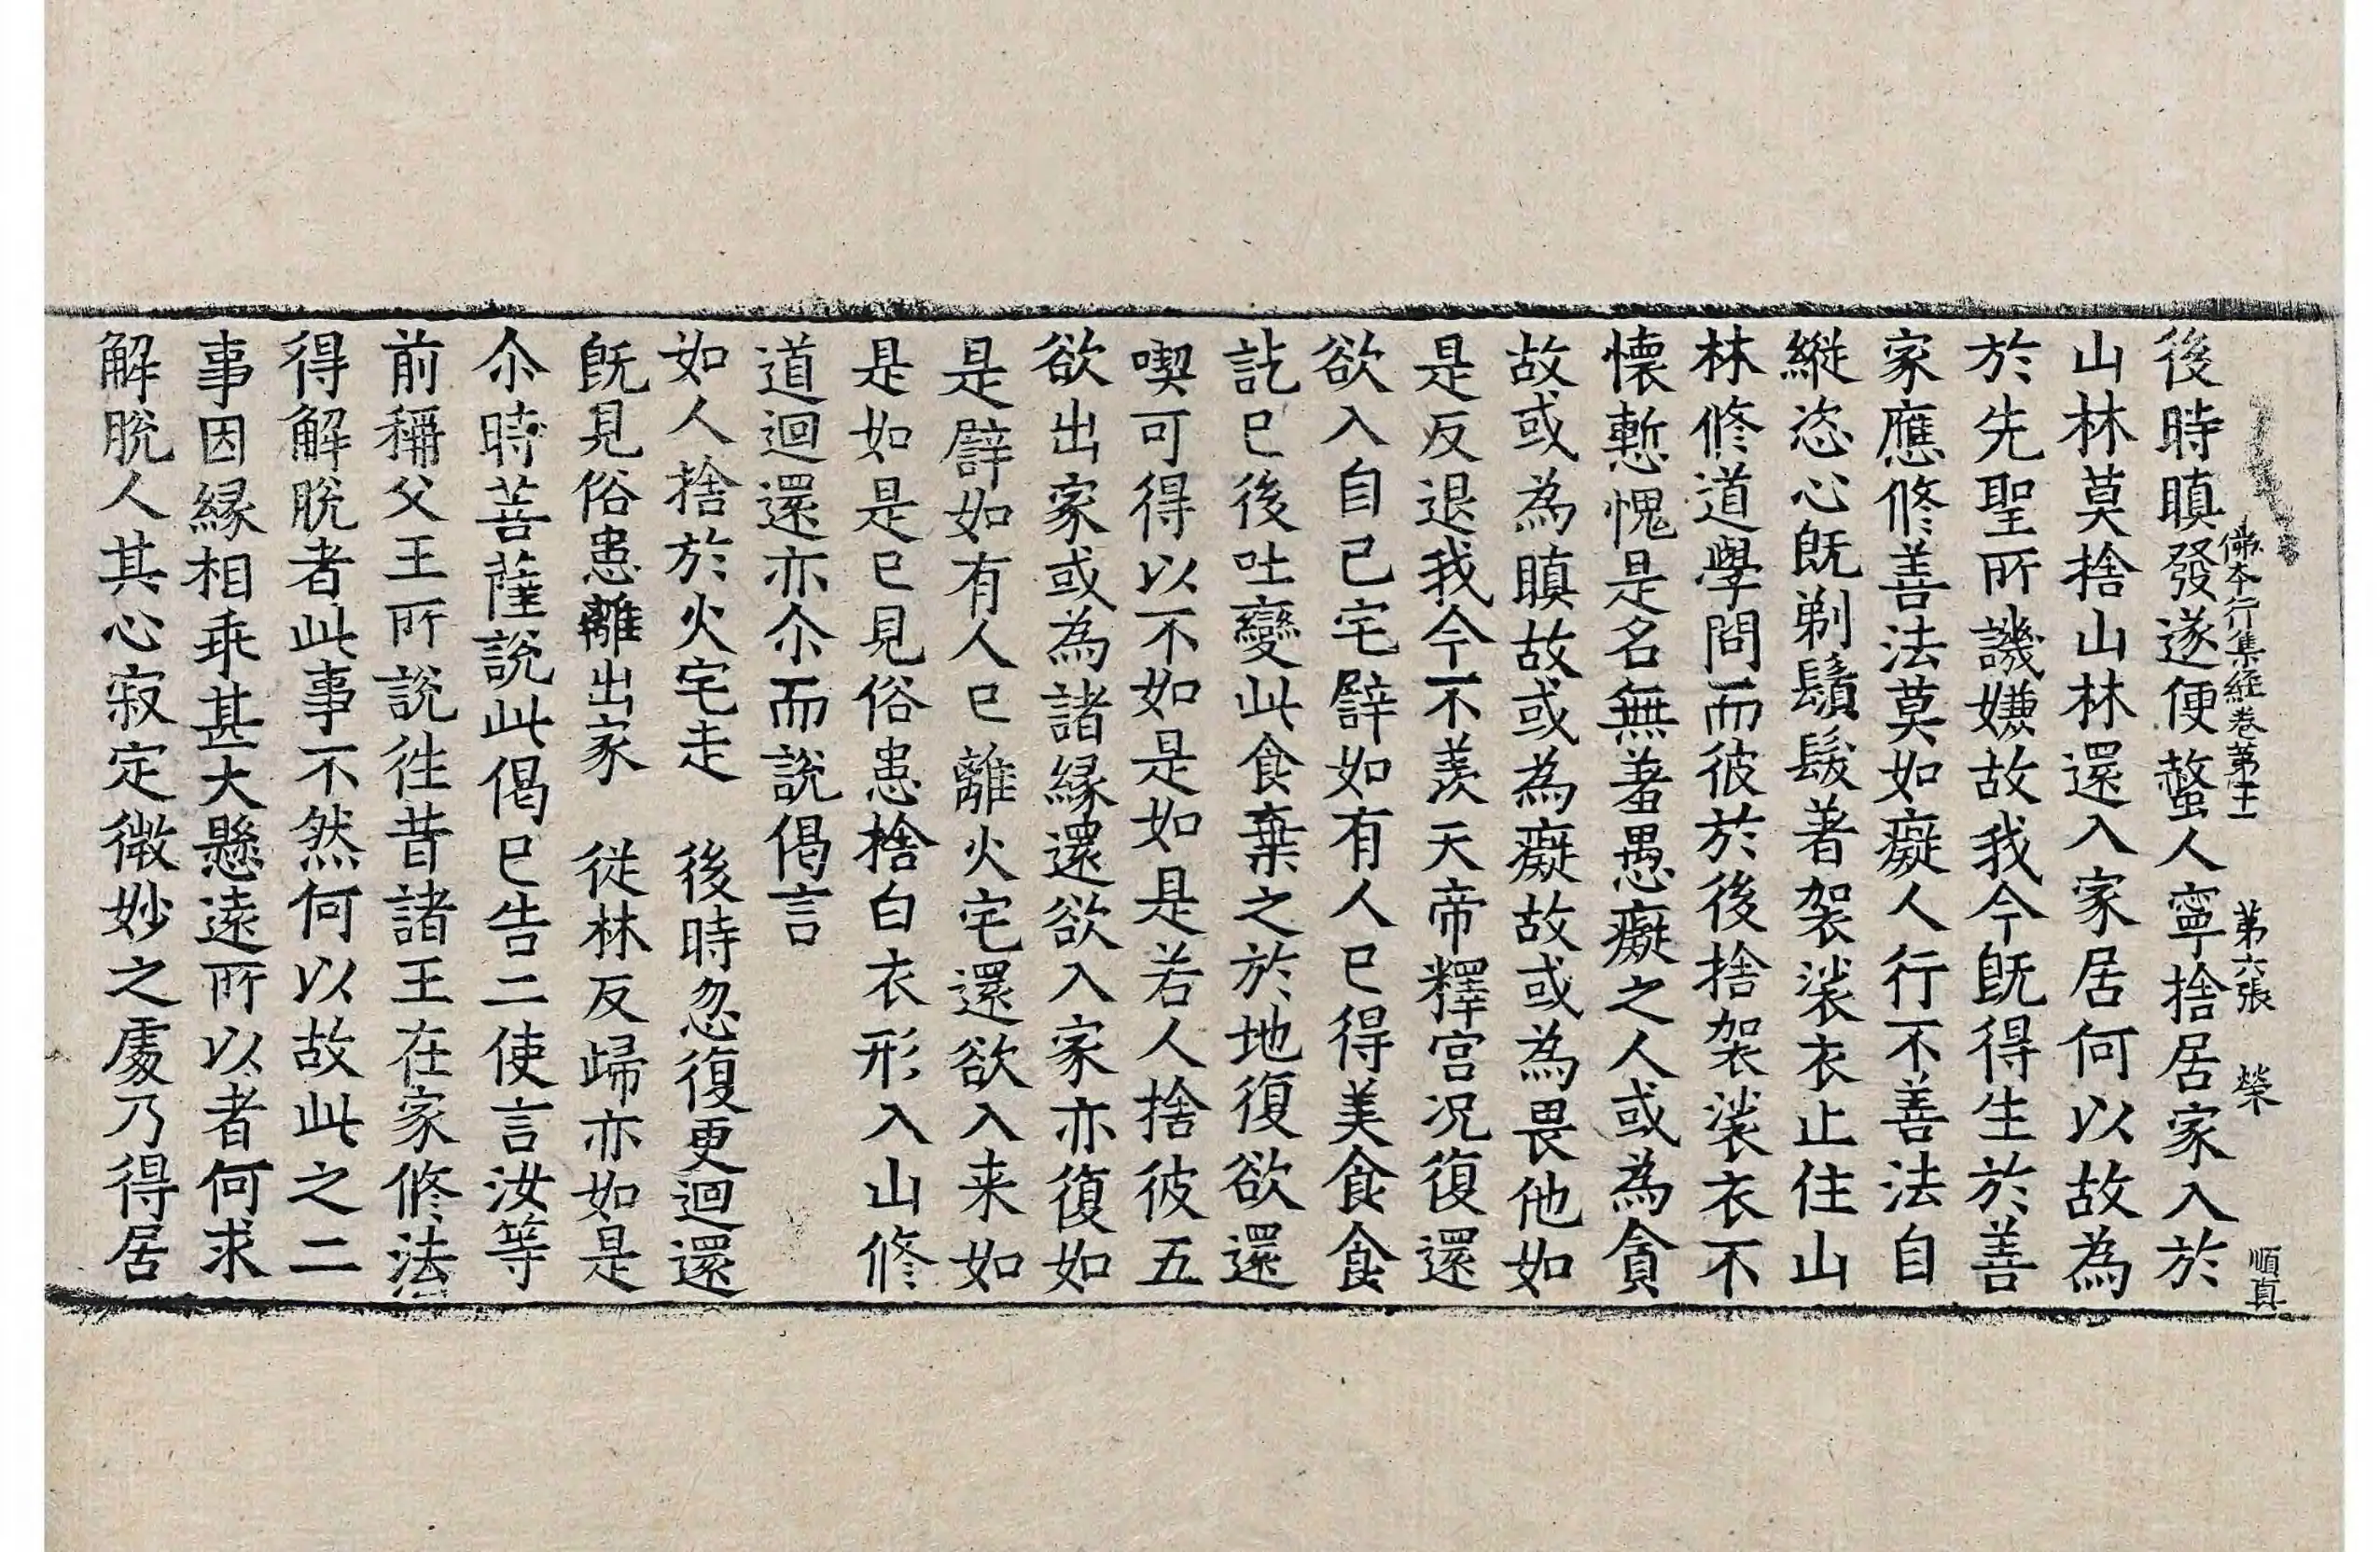 佛本行集経卷第二十一　第六張　榮　順真
後時瞋發遂便螫人寧捨居家入於
山林莫捨山林還入家居何以故為
於先聖所譏嫌故我今旣得生於善
家應修善法莫如癡人行不善法自
縱恣心旣剃鬚髮著袈裟衣止住山
林修道學問而彼於後捨袈裟衣不
懐慙愧是名無羞愚癡之人或為貪
故或為瞋故或為癡故或為畏他如
是反退我今不羨天帝釋宮况復還
欲入自己宅譬如有人已得美食食
訖已後吐變此食棄之於地復欲還
喫可得以不如是如是若人捨彼五
欲出家或為諸緣還欲入家亦復如
是譬如有人已離火宅還欲入来如
是如是已見俗患捨白衣形入山修
道迴還亦尒而說偈言
如人捨於火宅走　後時忽復更迴還
旣見俗患離出家　従林反歸亦如是
尒時菩薩說此偈已告二使言汝等
前稱父王所說徃昔諸王在家修法
得解脫者此事不然何以故此之二
事因緣相乖甚大懸遠所以者何求
解脫人其心寂定微妙之處乃得居